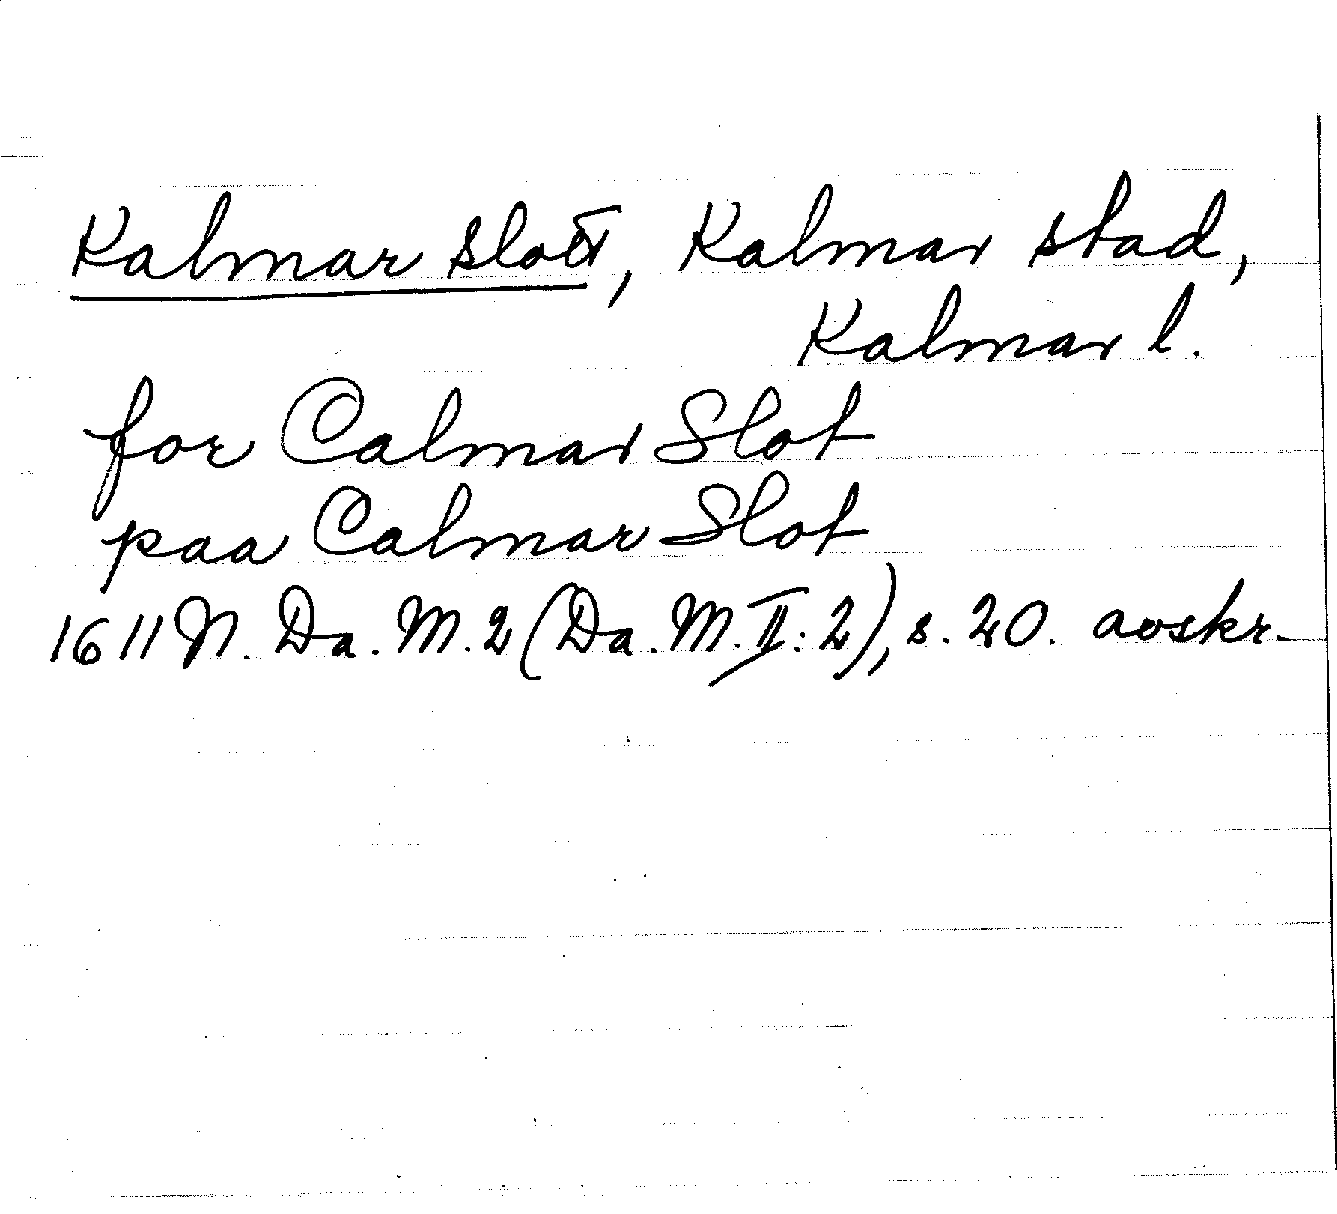 Kalmar slott, Kalmar stad,
Kalmar l.
for Calmar Slot
paa Calmar Slot
1611 N. Da. M. 2 (Da. M. II: 2), s. 20. avskr.